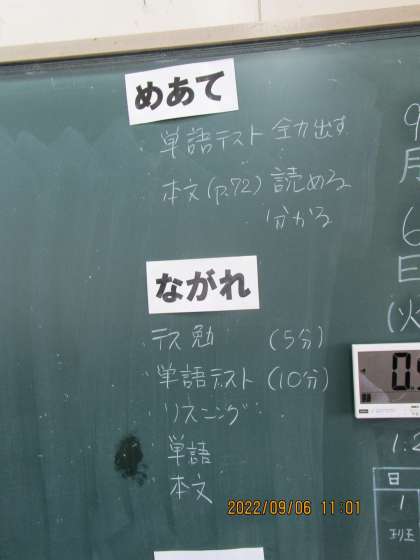 めあて
単語テスト 全力出す
本文(p.72) 読める
分かる
ながれ
テス勉 (5分)
単語テスト (10分)
リスニング
単語
本文
9
月
6
日
(火
日
1
班
2022/09/06 11:01